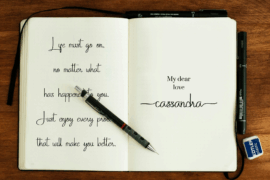 Life must go on,
no matter what
has happened to you.
Just enjoy every
that will make you better.
My dear
love
cassandra